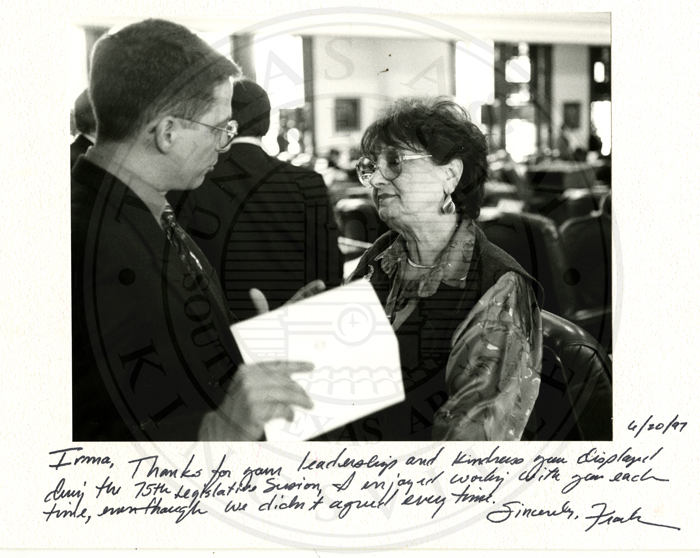 6/20/97
Irma, Thanks for your leadership and kindness you displayed
during the 75th Legislative Session, I enjoyed working with you each
time, even though we didn't agree every time.
Sincerely, Frank
TEXAS A&M
KINGSVILLE
SOUTH TEXAS ARCHIVES